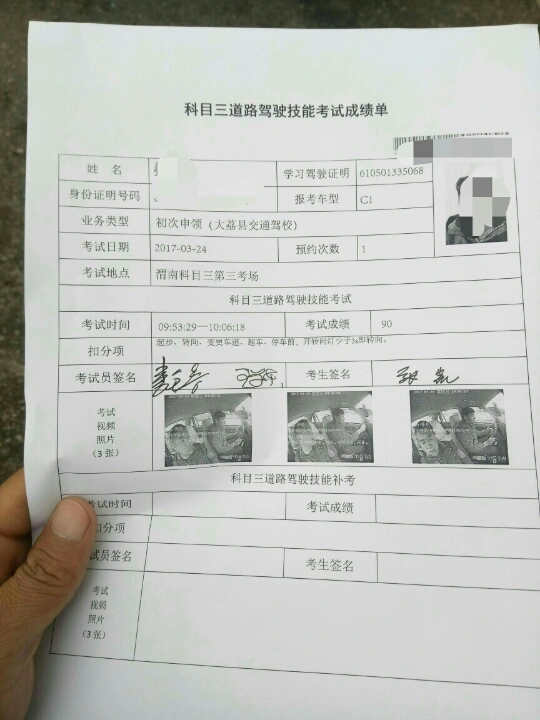 科目三道路驾驶技能考试成绩单
姓 名 学习驾驶证明 610501335068
身份证明号码 报考车型 C1
业务类型 初次申领（大荔县交通驾校）
考试日期 2017-03-24 预约次数 1
考试地点 渭南科目三第三考场
科目三道路驾驶技能考试
考试时间 09:53:29—10:06:18 考试成绩 90
扣分项 起步、转向、变更车道、超车、停车前，开转向灯少于3s即转向。
考试员签名 考生签名
考试
视频
照片
（3 张）
科目三道路驾驶技能补考
考试时间 考试成绩
扣分项
试员签名 考生签名
考试
视频
照片
（3 张）